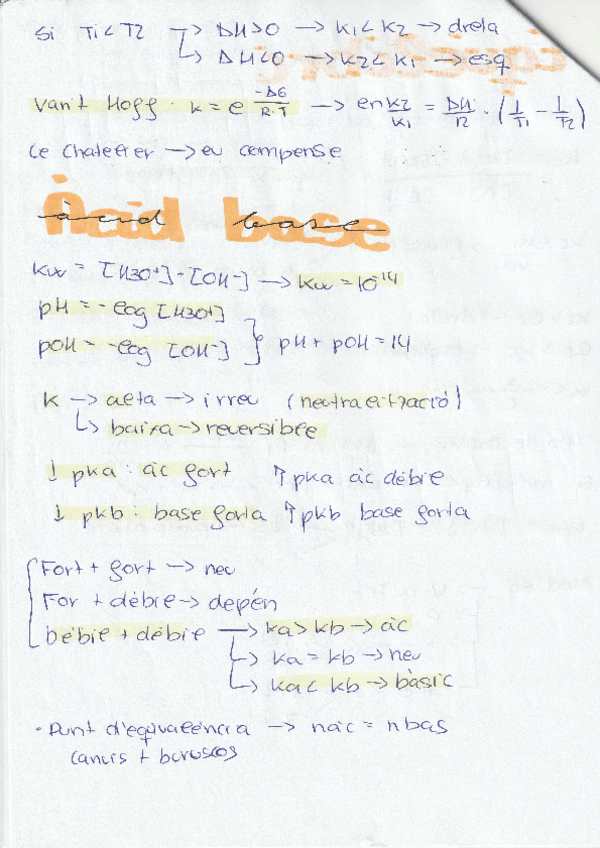 Si T1 < T2 → ΔH>0 → K1 < K2 → dreta
↳ ΔH<0 → K2 < K1 → esq
Van't Hoff · K = e^(-ΔG/R·T) → ln K2/K1 = ΔH/R · (1/T1 - 1/T2)
Le Chatelier → eu compense
Àcid base
Kw = [H3O+]·[OH-] → Kw = 10^-14
pH = -log [H3O+]
pOH = -log [OH-] } pH + pOH = 14
K → alta → irrev (neutralització)
↳ baixa → reversible
↓ pKa : àc fort ↑ pka àc dèbil
↓ pkb : base forta ↑ pkb base forta
Fort + fort → neu
For + dèbil → depèn
Dèbil + dèbil → ka > kb → àc
↳ ka = kb → neu
↳ ka < kb → bàsic
· Punt d'equivalència → nàc = nbas
canvis + bruscos